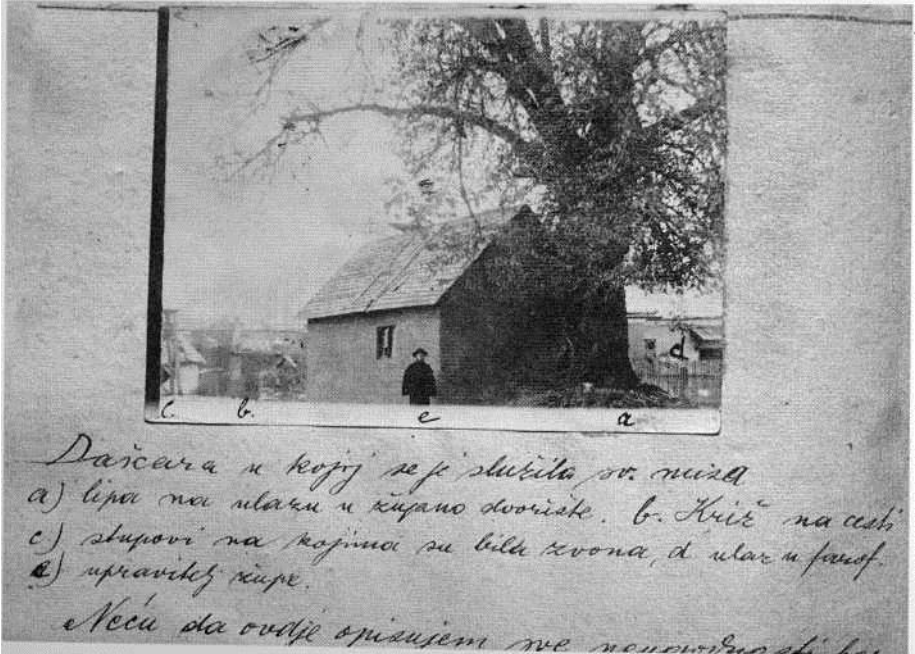 c. b. e a
d
Daščara u kojoj se je služila sv. misa
a) lipa na ulazu u župano dvorište. b. Križ na cesti
c) stupovi na kojima su bila zvona, d ulaz u farof.
e) upravitelj župe.
Neću da ovdje opisujem sve